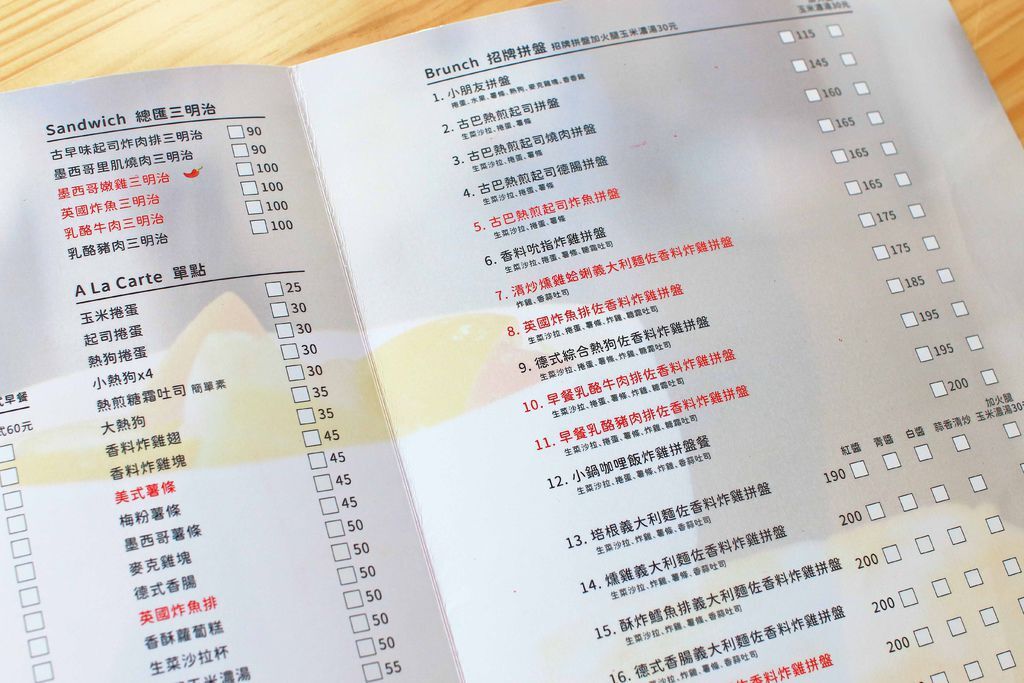 Sandwich 總匯三明治
古早味起司炸肉排三明治 90
墨西哥里肌燒肉三明治 90
墨西哥嫩雞三明治 100
英國炸魚三明治 100
乳酪牛肉三明治 100
乳酪豬肉三明治 100
A La Carte 單點
玉米捲蛋 25
起司捲蛋 30
熱狗捲蛋 30
小熱狗x4 30
熱煎糖霜吐司 簡單素 30
大熱狗 35
香料炸雞翅 35
香料炸雞塊 45
美式薯條 45
梅粉薯條 45
墨西哥薯條 50
麥克雞塊 50
德式香腸 50
英國炸魚排 50
香酥蘿蔔糕 50
生菜沙拉杯 50
玉米濃湯 55
式早餐
式60元
Brunch 招牌拼盤 招牌拼盤加火腿玉米濃湯30元
玉米濃湯30元
1. 小朋友拼盤 115
捲蛋、水果、薯條、熱狗、麥克雞塊、香香雞
2. 古巴熱煎起司拼盤 145
生菜沙拉、捲蛋、薯條
3. 古巴熱煎起司燒肉拼盤 160
生菜沙拉、捲蛋、薯條
4. 古巴熱煎起司德腸拼盤 165
生菜沙拉、捲蛋、薯條
5. 古巴熱煎起司炸魚拼盤 165
生菜沙拉、捲蛋、薯條
6. 香料吮指炸雞拼盤 165
生菜沙拉、捲蛋、薯條、糖霜吐司
7. 清炒燻雞蛤蜊義大利麵佐香料炸雞拼盤 175
炸雞、香蒜吐司
8. 英國炸魚排佐香料炸雞拼盤 175
生菜沙拉、捲蛋、薯條、炸雞、糖霜吐司
9. 德式綜合熱狗佐香料炸雞拼盤 185
生菜沙拉、捲蛋、薯條、炸雞、糖霜吐司
10. 早餐乳酪牛肉排佐香料炸雞拼盤 195
生菜沙拉、捲蛋、薯條、炸雞、糖霜吐司
11. 早餐乳酪豬肉排佐香料炸雞拼盤 195
生菜沙拉、捲蛋、薯條、炸雞、糖霜吐司
12. 小鍋咖哩飯炸雞拼盤餐 200
生菜沙拉、捲蛋、薯條、炸雞、香蒜吐司
紅醬 青醬 白醬 蒜香清炒 加火腿玉米濃湯30元
13. 培根義大利麵佐香料炸雞拼盤 190
生菜沙拉、炸雞、薯條、香蒜吐司
14. 燻雞義大利麵佐香料炸雞拼盤 200
生菜沙拉、炸雞、薯條、香蒜吐司
15. 酥炸鱈魚排義大利麵佐香料炸雞拼盤 200
生菜沙拉、炸雞、薯條、香蒜吐司
16. 德式香腸義大利麵佐香料炸雞拼盤 200
生菜沙拉、炸雞、薯條、香蒜吐司
香料炸雞拼盤 200